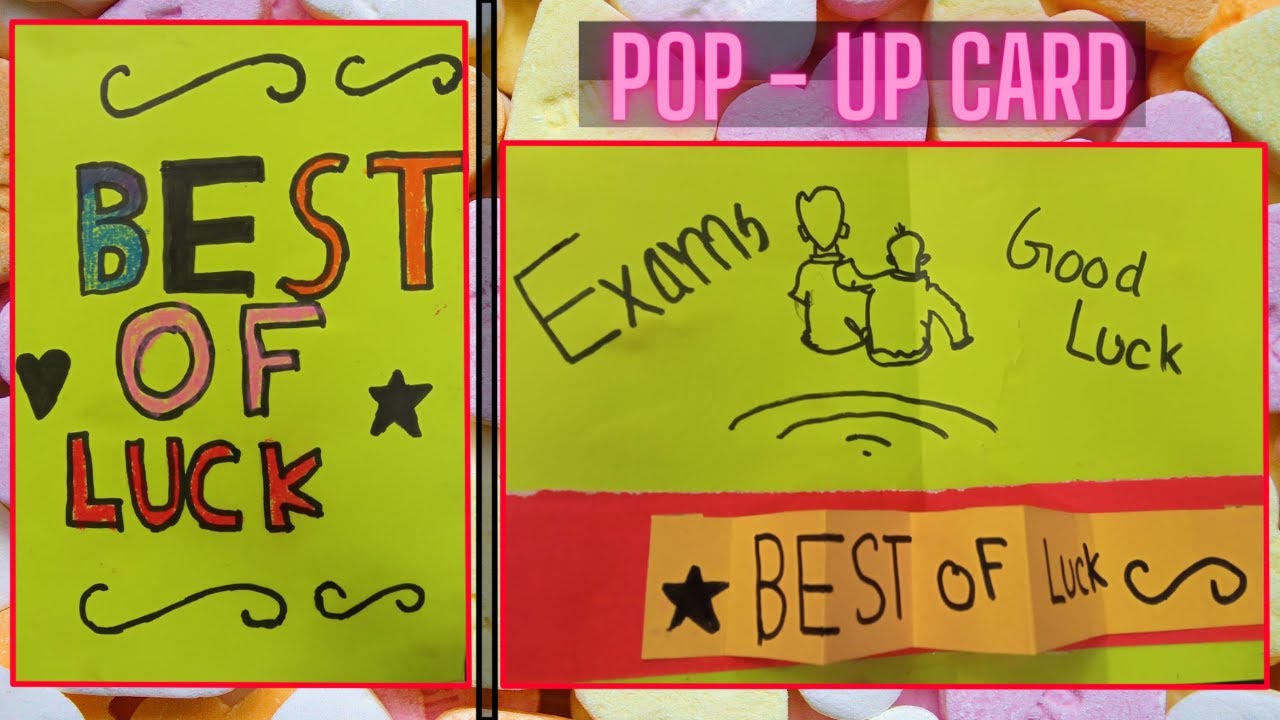 BEST
OF
LUCK
POP - UP CARD
Exams
Good
Luck
BEST OF LUCK